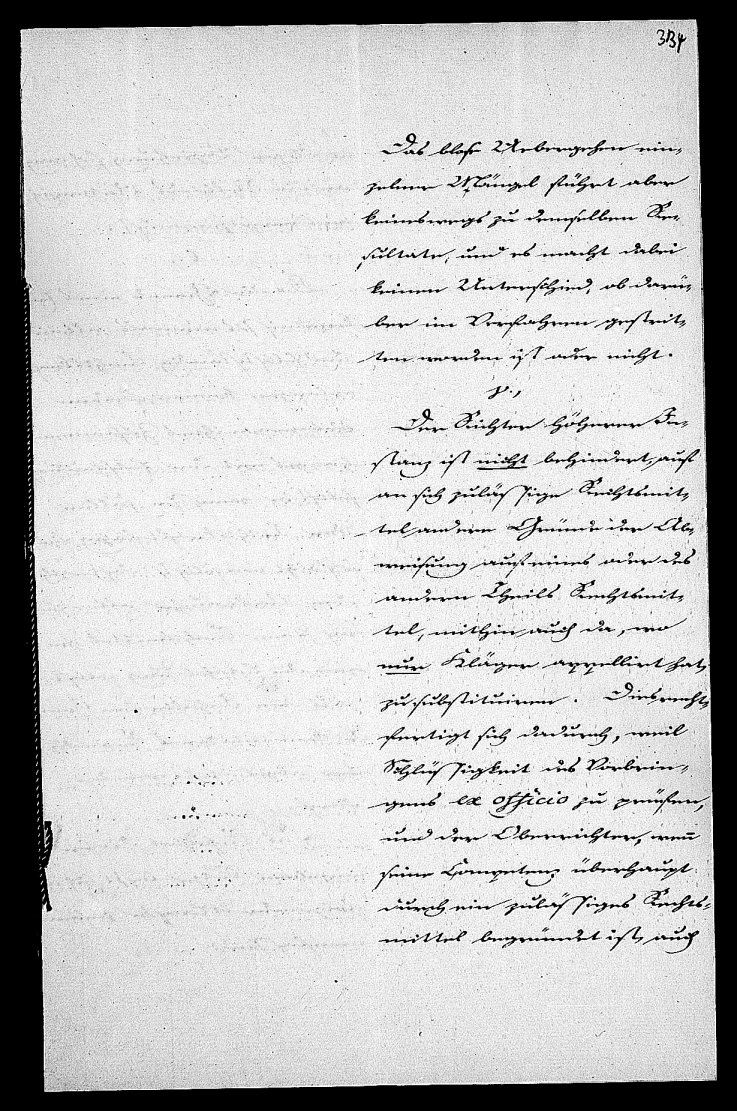 334
Das bloße Uebergehen ein-
zelner Mängel führt aber
keineswegs zu demselben Re-
sultate, und es macht dabei
keinen Unterschied, ob darü-
ber im Verfahren gestrit-
ten worden ist oder nicht.
Der Richter höherer In-
stanz ist nicht behindert, auf
an sich zulässige Rechtsmit-
tel andere Gründe der Ab-
weisung auf eines oder des
andern Theils Rechtsmit-
tel, mithin auch da, wo
nur Kläger appellirt hat,
zu substituiren. Dies recht-
fertigt sich dadurch, weil
Schlüssigkeit des Vorbrin-
gens ex officio zu prüfen,
und der Oberrichter, wenn
seine Competenz überhaupt
durch ein zulässiges Rechts-
mittel begründet ist, auch